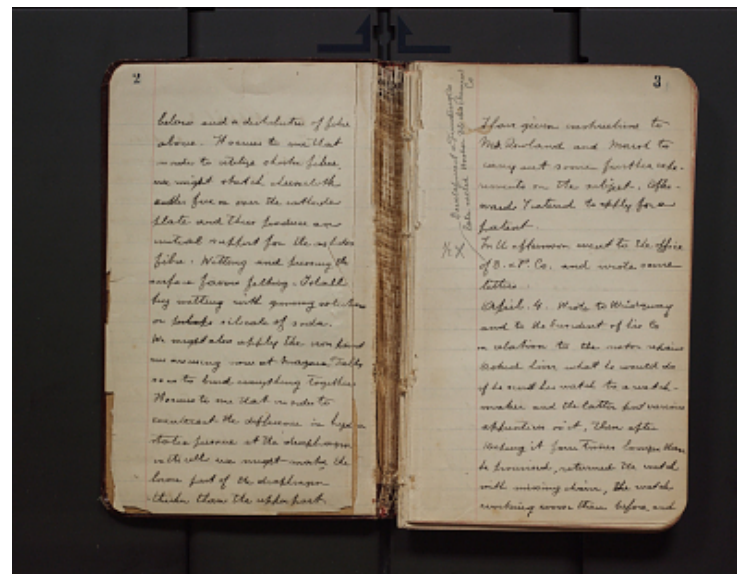 2
below and a distributer of fibre
above. It occurs to me that
in order to utilize shorter fibre,
we might stretch cheesecloth
over the cathode
plate and thus produce an
initial support for the asbestos
fibre. Wetting and pressing the
surface favors felting. I shall
try wetting with gummy solution
or perhaps silicate of soda.
We might also apply the iron paint
we are using now at Niagara Falls
so as to bind everything together
It occurs to me that in order to
counteract the difference in hydro
static pressure at the diaphragm
in the cells we might make the
lower part of the diaphragm
thicker than the upper part
3
Development & Funding Co
later called Hooker Electro Chemical
Co
I have given instructions to
Mr. Rowland and Marsh to
carry out some further expe-
riments on the subject. After-
wards I intend to apply for a
patent.
In the afternoon went to the office
of D. & F. Co. and wrote some
letters.
April. 4. Wrote to
and to the President of his Co
in relation to the motor repairs
asked him what he would do
if he sent his watch to a watch-
maker and the latter put various
appendices on it, then after
keeping it four times longer than
he promised, returned the watch
with missing chain, the watch
working worse than before, and